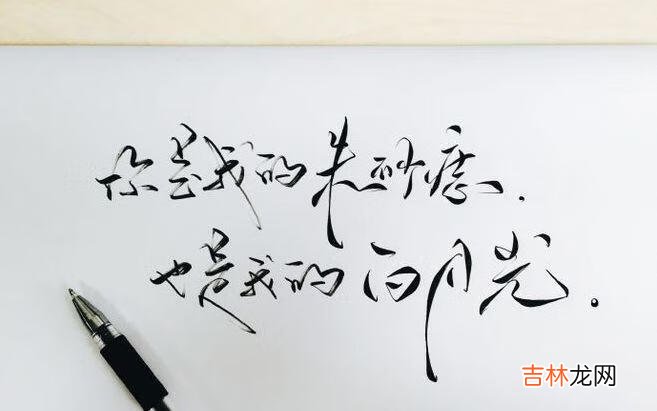 你是我的朱砂痣.
也是我的白月光.
吉林龙网